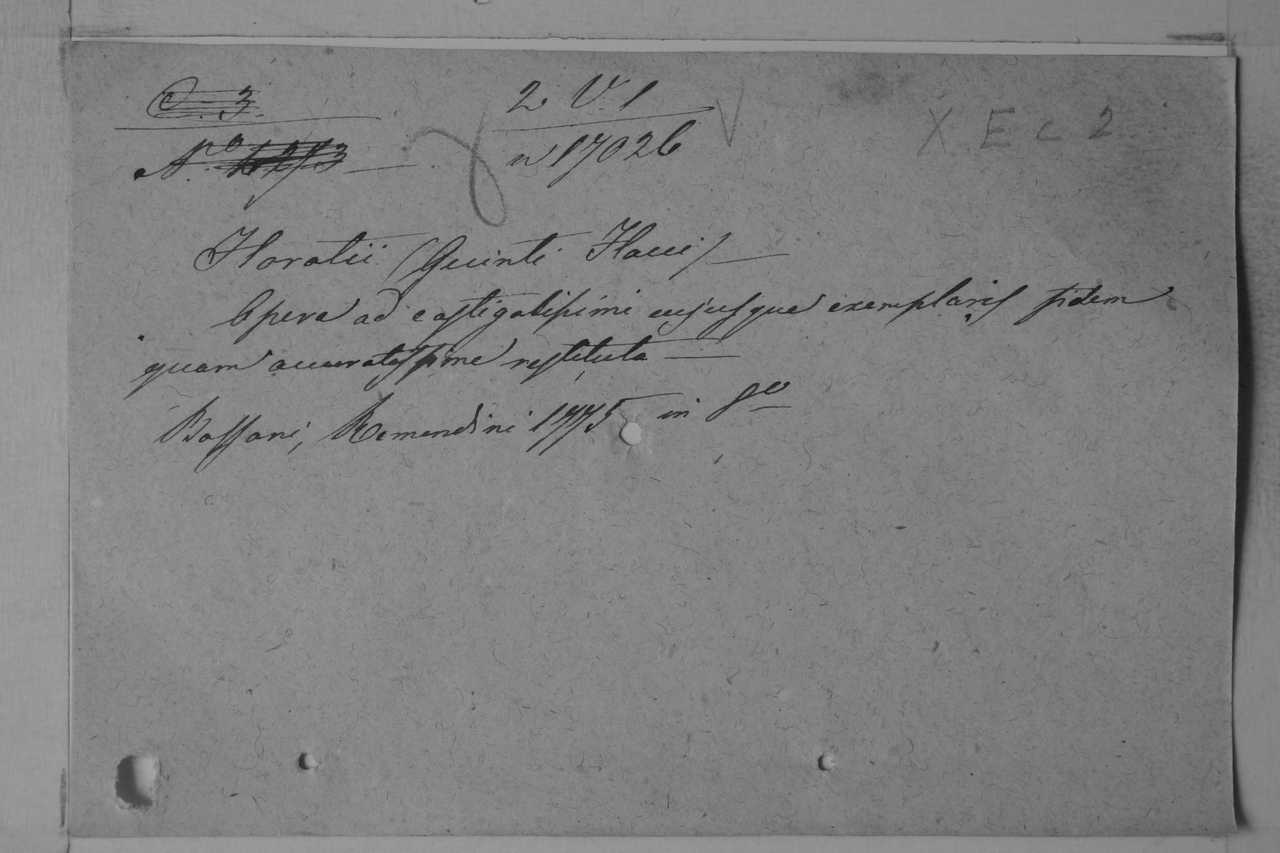 C. 3. 2 V. 1 V X E c 2
N.º n 17026
Horatii (Quinti Flacci)
Opera ad castigatissimi cujusque exemplaris fidem
quam accuratissime restituta
Bassani, Remondini 1775 in 8º